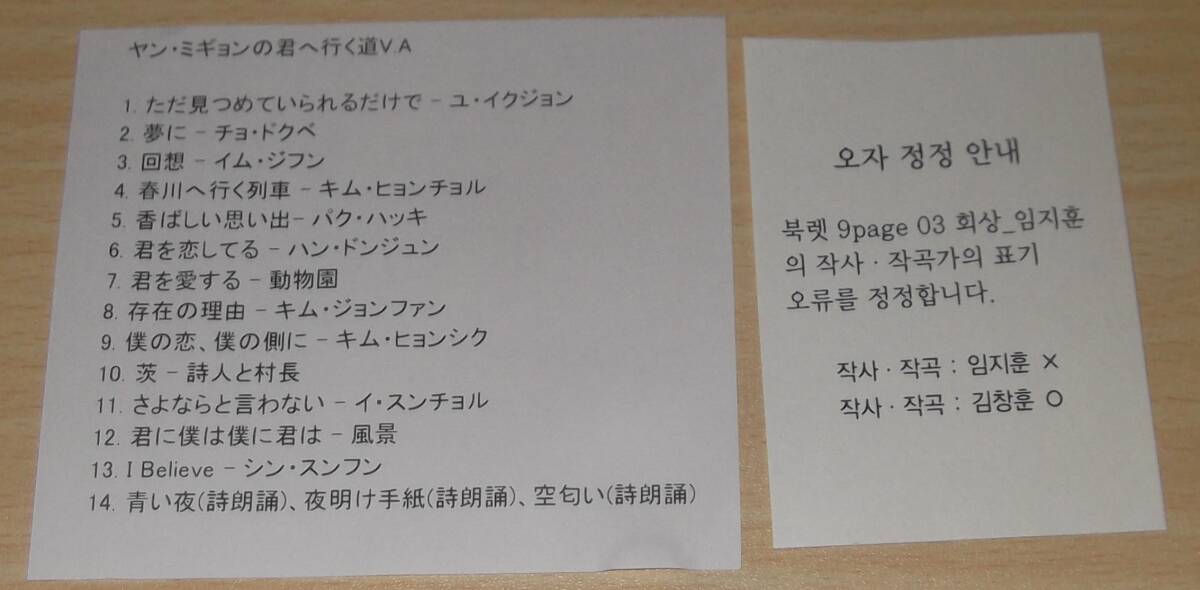 ヤン・ミギョンの君へ行く道V.A
1. ただ見つめていられるだけで - ユ・イクジョン
2. 夢に - チョ・ドクベ
3. 回想 - イム・ジフン
4. 春川へ行く列車 - キム・ヒョンチョル
5. 香ばしい思い出- パク・ハッキ
6. 君を恋してる - ハン・ドンジュン
7. 君を愛する - 動物園
8. 存在の理由 - キム・ジョンファン
9. 僕の恋、僕の側に - キム・ヒョンシク
10. 茨 - 詩人と村長
11. さよならと言わない - イ・スンチョル
12. 君に僕は僕に君は - 風景
13. I Believe - シン・スンフン
14. 青い夜(詩朗誦)、夜明け手紙(詩朗誦)、空匂い(詩朗誦)
오자 정정 안내
북렛 9page 03 회상_임지훈
의 작사 · 작곡가의 표기
오류를 정정합니다.
작사 · 작곡 : 임지훈 ×
작사 · 작곡 : 김창훈 O